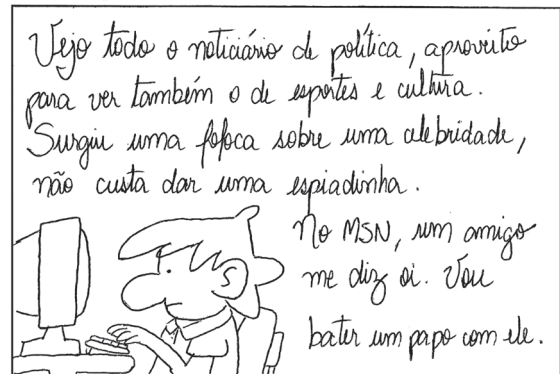 Vejo todo o noticiário de política, aproveito
para ver também o de esportes e cultura.
Surgiu uma fofoca sobre uma celebridade,
não custa dar uma espiadinha.
No MSN, um amigo
me diz oi. Vou
bater um papo com ele.